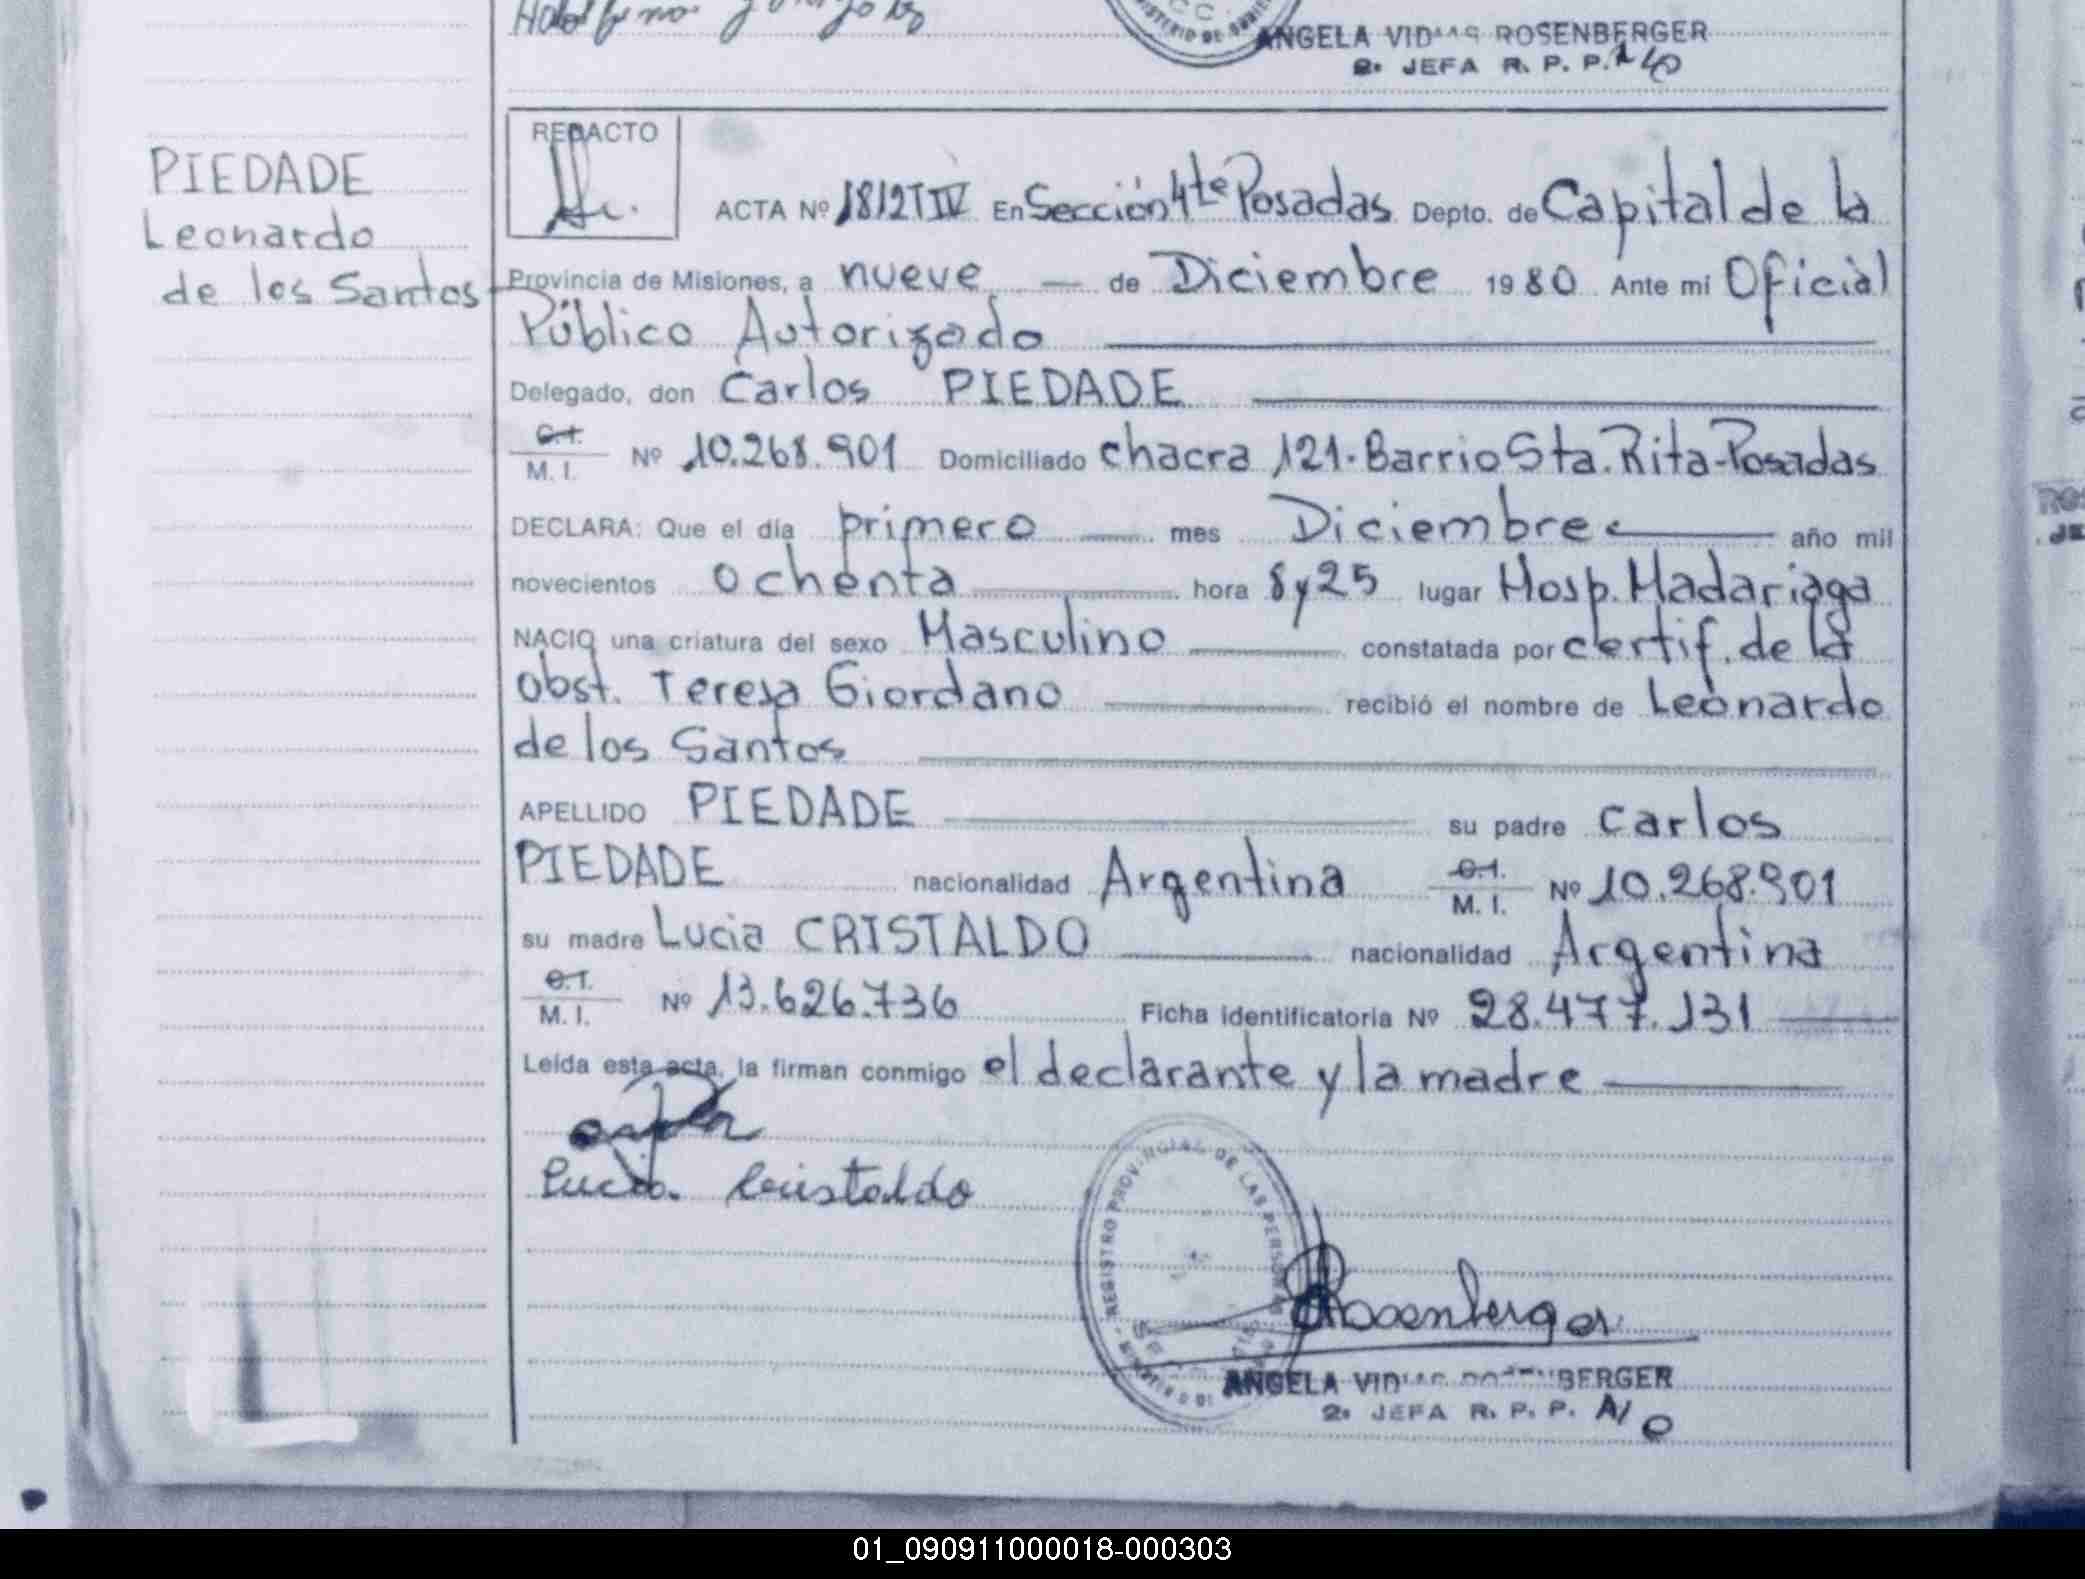 ANGELA VIDAL ROSENBERGER
2. JEFA R. P. P.
PIEDADE
Leonardo
de los Santos
REDACTO
ACTA Nº 1812 T IV En Sección 4te Posadas Depto. de Capital de la
Provincia de Misiones, a nueve de Diciembre 1980 Ante mí Oficial
Público Autorizado
Delegado, don Carlos PIEDADE
C.I.
M. I. Nº 10.268.901 Domiciliado chacra 121-Barrio Sta. Rita-Posadas
DECLARA: Que el día primero mes Diciembre año mil
novecientos ochenta hora 8 y 25 lugar Hosp. Madariaga
NACIO una criatura del sexo Masculino constatada por certif. de la
obst. Teresa Giordano recibió el nombre de Leonardo
de los Santos
APELLIDO PIEDADE su padre Carlos
PIEDADE nacionalidad Argentina C.I. M. I. Nº 10.268.901
su madre Lucia CRISTALDO nacionalidad Argentina
C.I.
M. I. Nº 13.626.736 Ficha identificatoria Nº 28.477.131
Leída esta acta, la firman conmigo el declarante y la madre
Lucia Cristaldo
REGISTRO PROVINCIAL DE LAS PERSONAS
Rosenberger
ANGELA ROSENBERGER
2. JEFA R. P. P. A/C
01_090911000018-000303